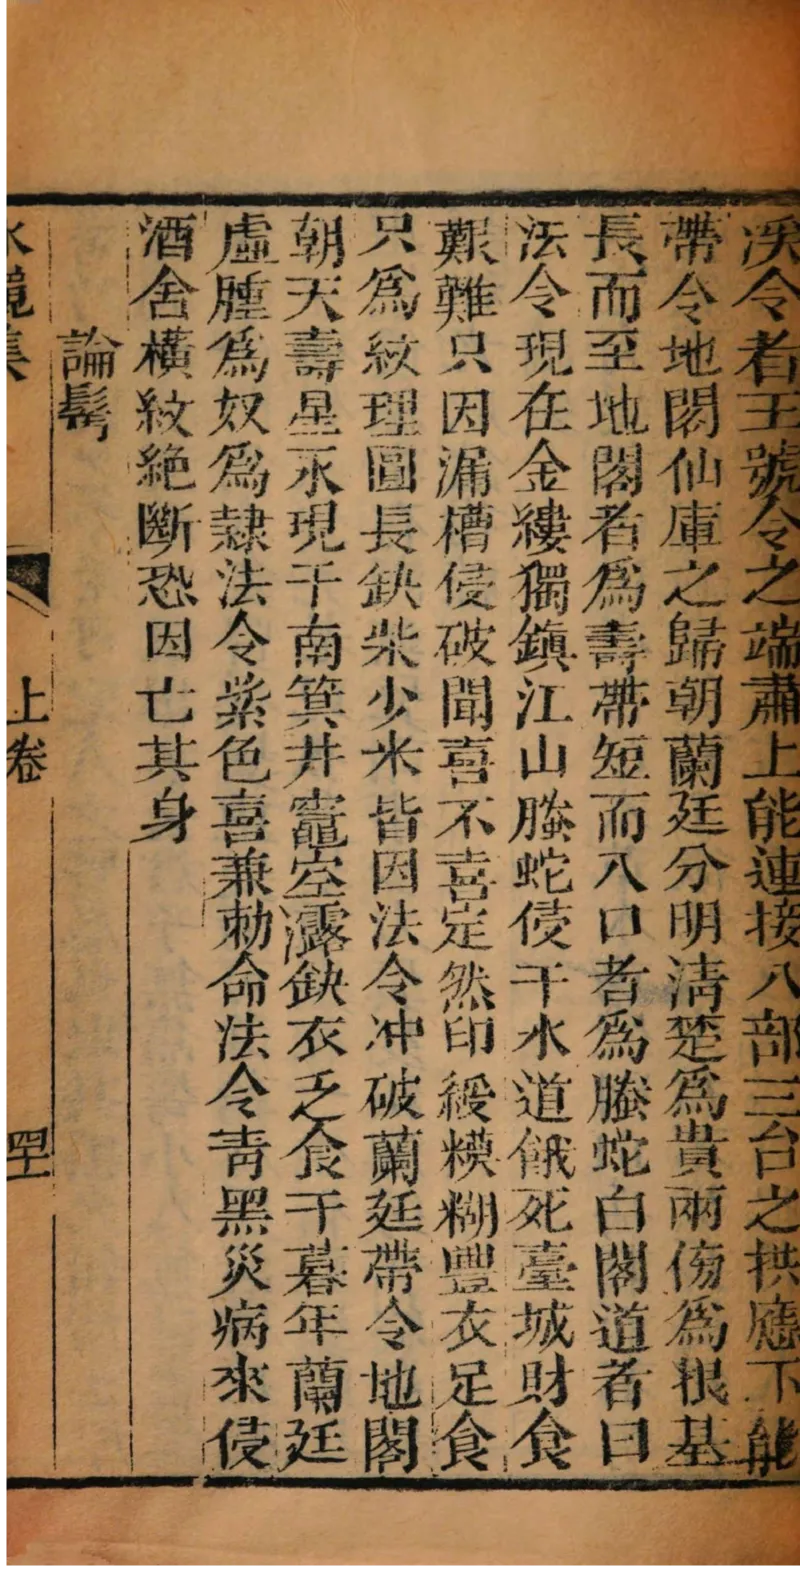 淚令者王號令之端肅上能連接八部三台之拱應下能
帶令地閣仙庫之歸朝蘭廷分明清楚為貴兩傍為根基
長而至地閣者為壽帶短而入口者為螣蛇白閣道者曰
法令現在金縷獨鎮江山螣蛇侵于水道餓死臺城財食
艱難只因漏槽侵破聞喜不喜定然印綬糢糊豐衣足食
只為紋理圓長缺柴少米皆因法令冲破蘭廷帶令地閣
朝天壽星永現于南箕井竈空露缺衣乏食于暮年蘭廷
虛腫為奴為隸法令紫色喜兼勅命法令青黑災病來侵
酒舍橫紋絕斷恐因亡其身
論髩
水鏡集
上卷